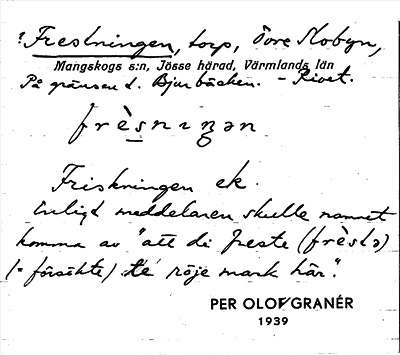 ? Frestningen, torp, Övre Mobyn,
Mangskogs s:n, Jösse härad, Värmlands län
På gränsen t. Bjurbäcken. – Rivet.
frèsnıŋən
Friskningen ek.
Enligt meddelaren skulle namnet
komma av "att di freste (frèstə)
(= försökte) te röje mark här".
PER OLOF GRANÉR
1939